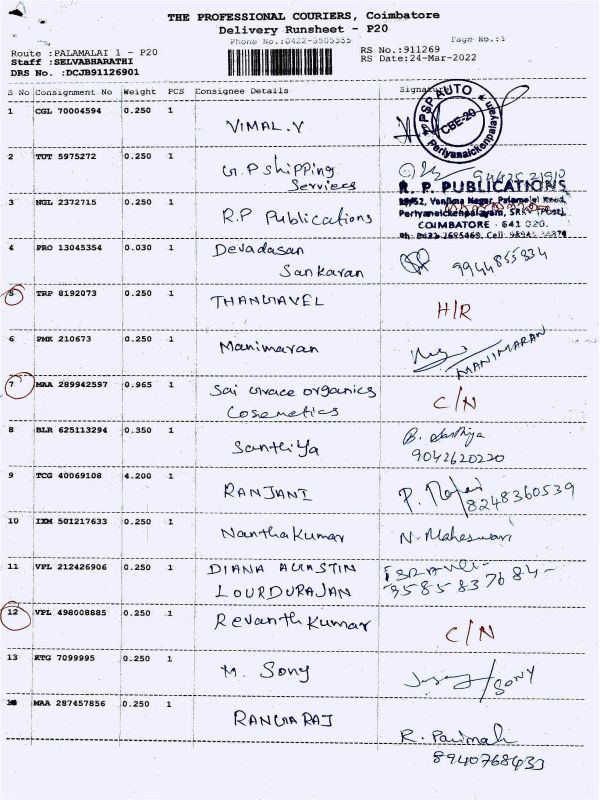 THE PROFESSIONAL COURIERS, Coimbatore
Delivery Runsheet - P20
Phone No.:0422-3505555 Page No.:1
Route :PALAMALAI 1 - P20 RS No.:911269
Staff :SELVABHARATHI RS Date:24-Mar-2022
DRS No. :DCJB91126901
S No Consignment No Weight PCS Consignee Details Signature
1 CGL 70004594 0.250 1 VIMAL.V
PSP AUTO
CBE-29
Periyanaickenpalayam
2 TUT 5975272 0.250 1 G.P Shipping
Services
3 NGL 2372715 0.250 1 R.P Publications
R. P. PUBLICATIONS
Periyanaickenpalayam, SRKV (Post),
COIMBATORE - 641 020.
4 PRO 13045354 0.030 1 Devadasan
Sankaran 9944855834
5 TRP 8192073 0.250 1 THANGAVEL H/R
6 PMK 210673 0.250 1 Manimaran MANIMARAN
7 MAA 289942597 0.965 1 Sai Grace organics
Cosemetics C/N
8 BLR 625113294 0.350 1 Santhiya B. Santhiya
9042620220
9 TCG 40069108 4.200 1 RANJANI
8248360539
10 IXM 501217633 0.250 1 Nanthakumar N. Maheswari
11 VPL 212426906 0.250 1 DIANA AGASTIN
LOURDURAJAN
12 VPL 498008885 0.250 1 Revanth Kumar C/N
13 KTG 7099995 0.250 1 M. Sony SONY
14 MAA 287457856 0.250 1 RANGARAJ